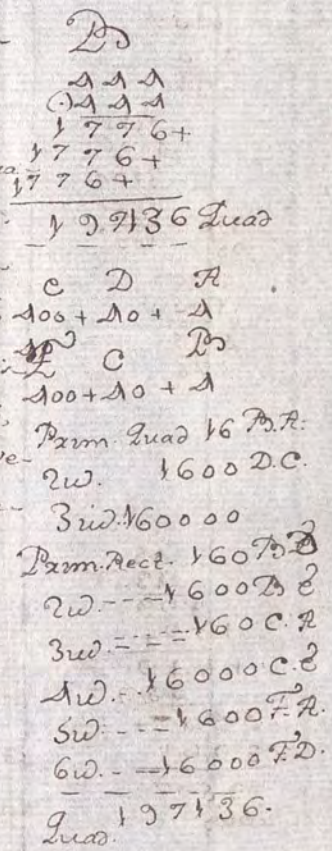 B
4 4 4
(·)4 4 4
1 7 7 6+
1 7 7 6+
1 7 7 6+
1 9 7136 Quad
C D A
400 + 40 + 4
C B
400+40+4
Prim. Quad 16 B.A.
2w. 1600 D.C.
3rw. 160000
Prim. Rect. 160 B D
2w. --- 1600 B E
3rw. --- 160 C.A
4w. - 16000 C.E
5w. --- 1600 F.A.
6w. -- 16000 F.D.
Quad. 197136.